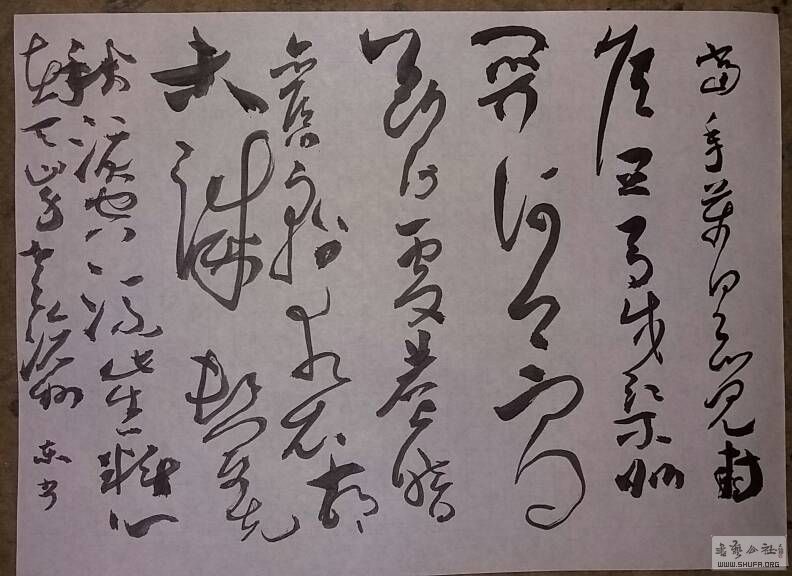 當年萬里覓封
侯匹馬戍梁州
關河夢
斷何處塵暗
舊貂裘胡
未滅鬢先
秋淚空流此生誰料心
在天山身老滄洲 东书
书艺公社
WWW.SHUFA.ORG